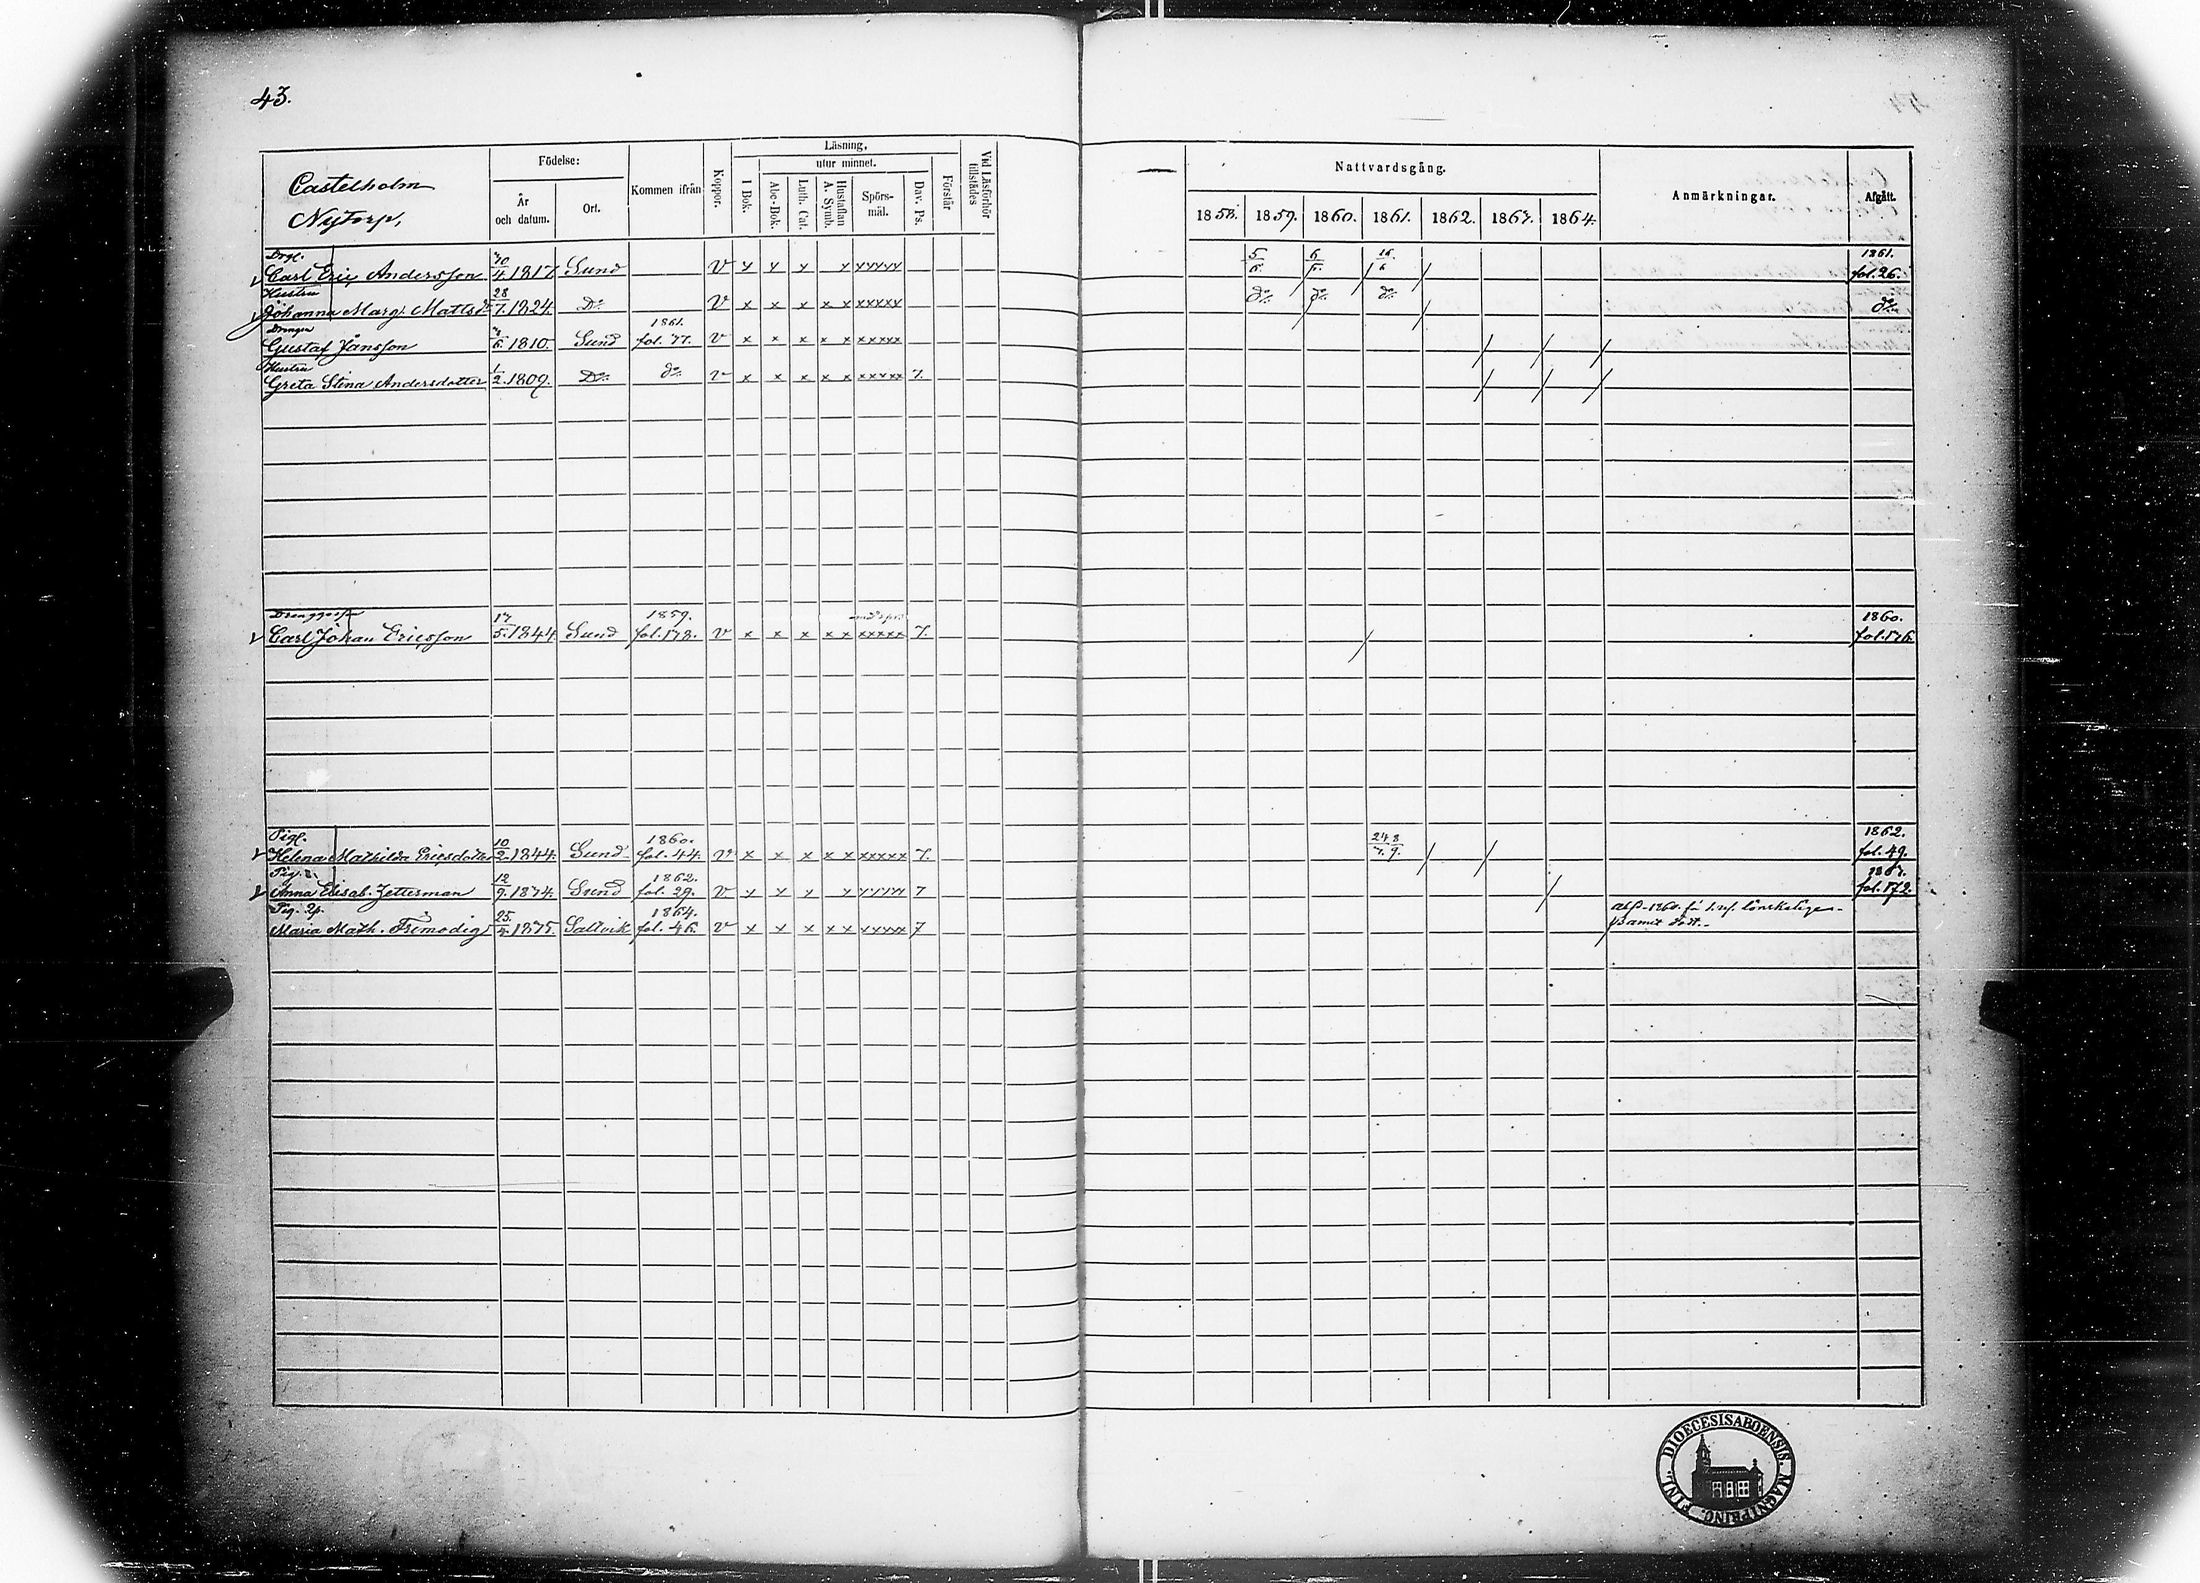 43.
Castelholm
Nytorp,
Födelse:
År och datum.
Ort.
Kommen ifrån
Koppor.
Läsning,
utur minnet.
I Bok.
Abc-Bok.
Luth. Cat.
Hustaflan A. Symb.
Spörs-mål.
Dav. Ps.
Förstår
Vid Läsförhör tillstädes
Nattvardsgång.
1858. 1859. 1860. 1861. 1862. 1863. 1864.
Anmärkningar.
Afgått.
Drgl. 1861.
Carl Eric Andersson 4. 1817 Sund v y y y y yyyyy 5/6. 6/5. 16/6 fol. 26.
Hustru
Johanna Marg. Mattsd 28/7. 1824. Do v x x x x x xxxxx do. do. do. do.
Drengen 1861.
Gustaf Jansson 6. 1810. Sund fol. 77. v x x x x x xxxxx
Hustru
Greta Stina Andersdotter 1/2. 1809. Do. do. v x x x x x xxxxx 7.
1859. 1860.
Carl Johan Ericsson 17/5. 1844 Sund fol. 178. v x x x x x xxxxx 7. fol. 176.
Pigl. 1860. 1862.
Helena Mathilda Ericsdotter 10/2. 1844. Sund fol. 44. v x x x x x xxxxx 7. 24/7. 8/9. fol. 49.
Pig. 1862.
Anna Elisab. Zetterman 12/9. 1834. Sund fol. 29. v y y y y yyyyy 7 fol. 172.
Pig. 2p. 1864.
Maria Math. Frimodig 25. Saltvik fol. 46. v x x x x x xxxxx 7
FINL. DIOECESIS ABOENSIS. MAGNI PRINC.